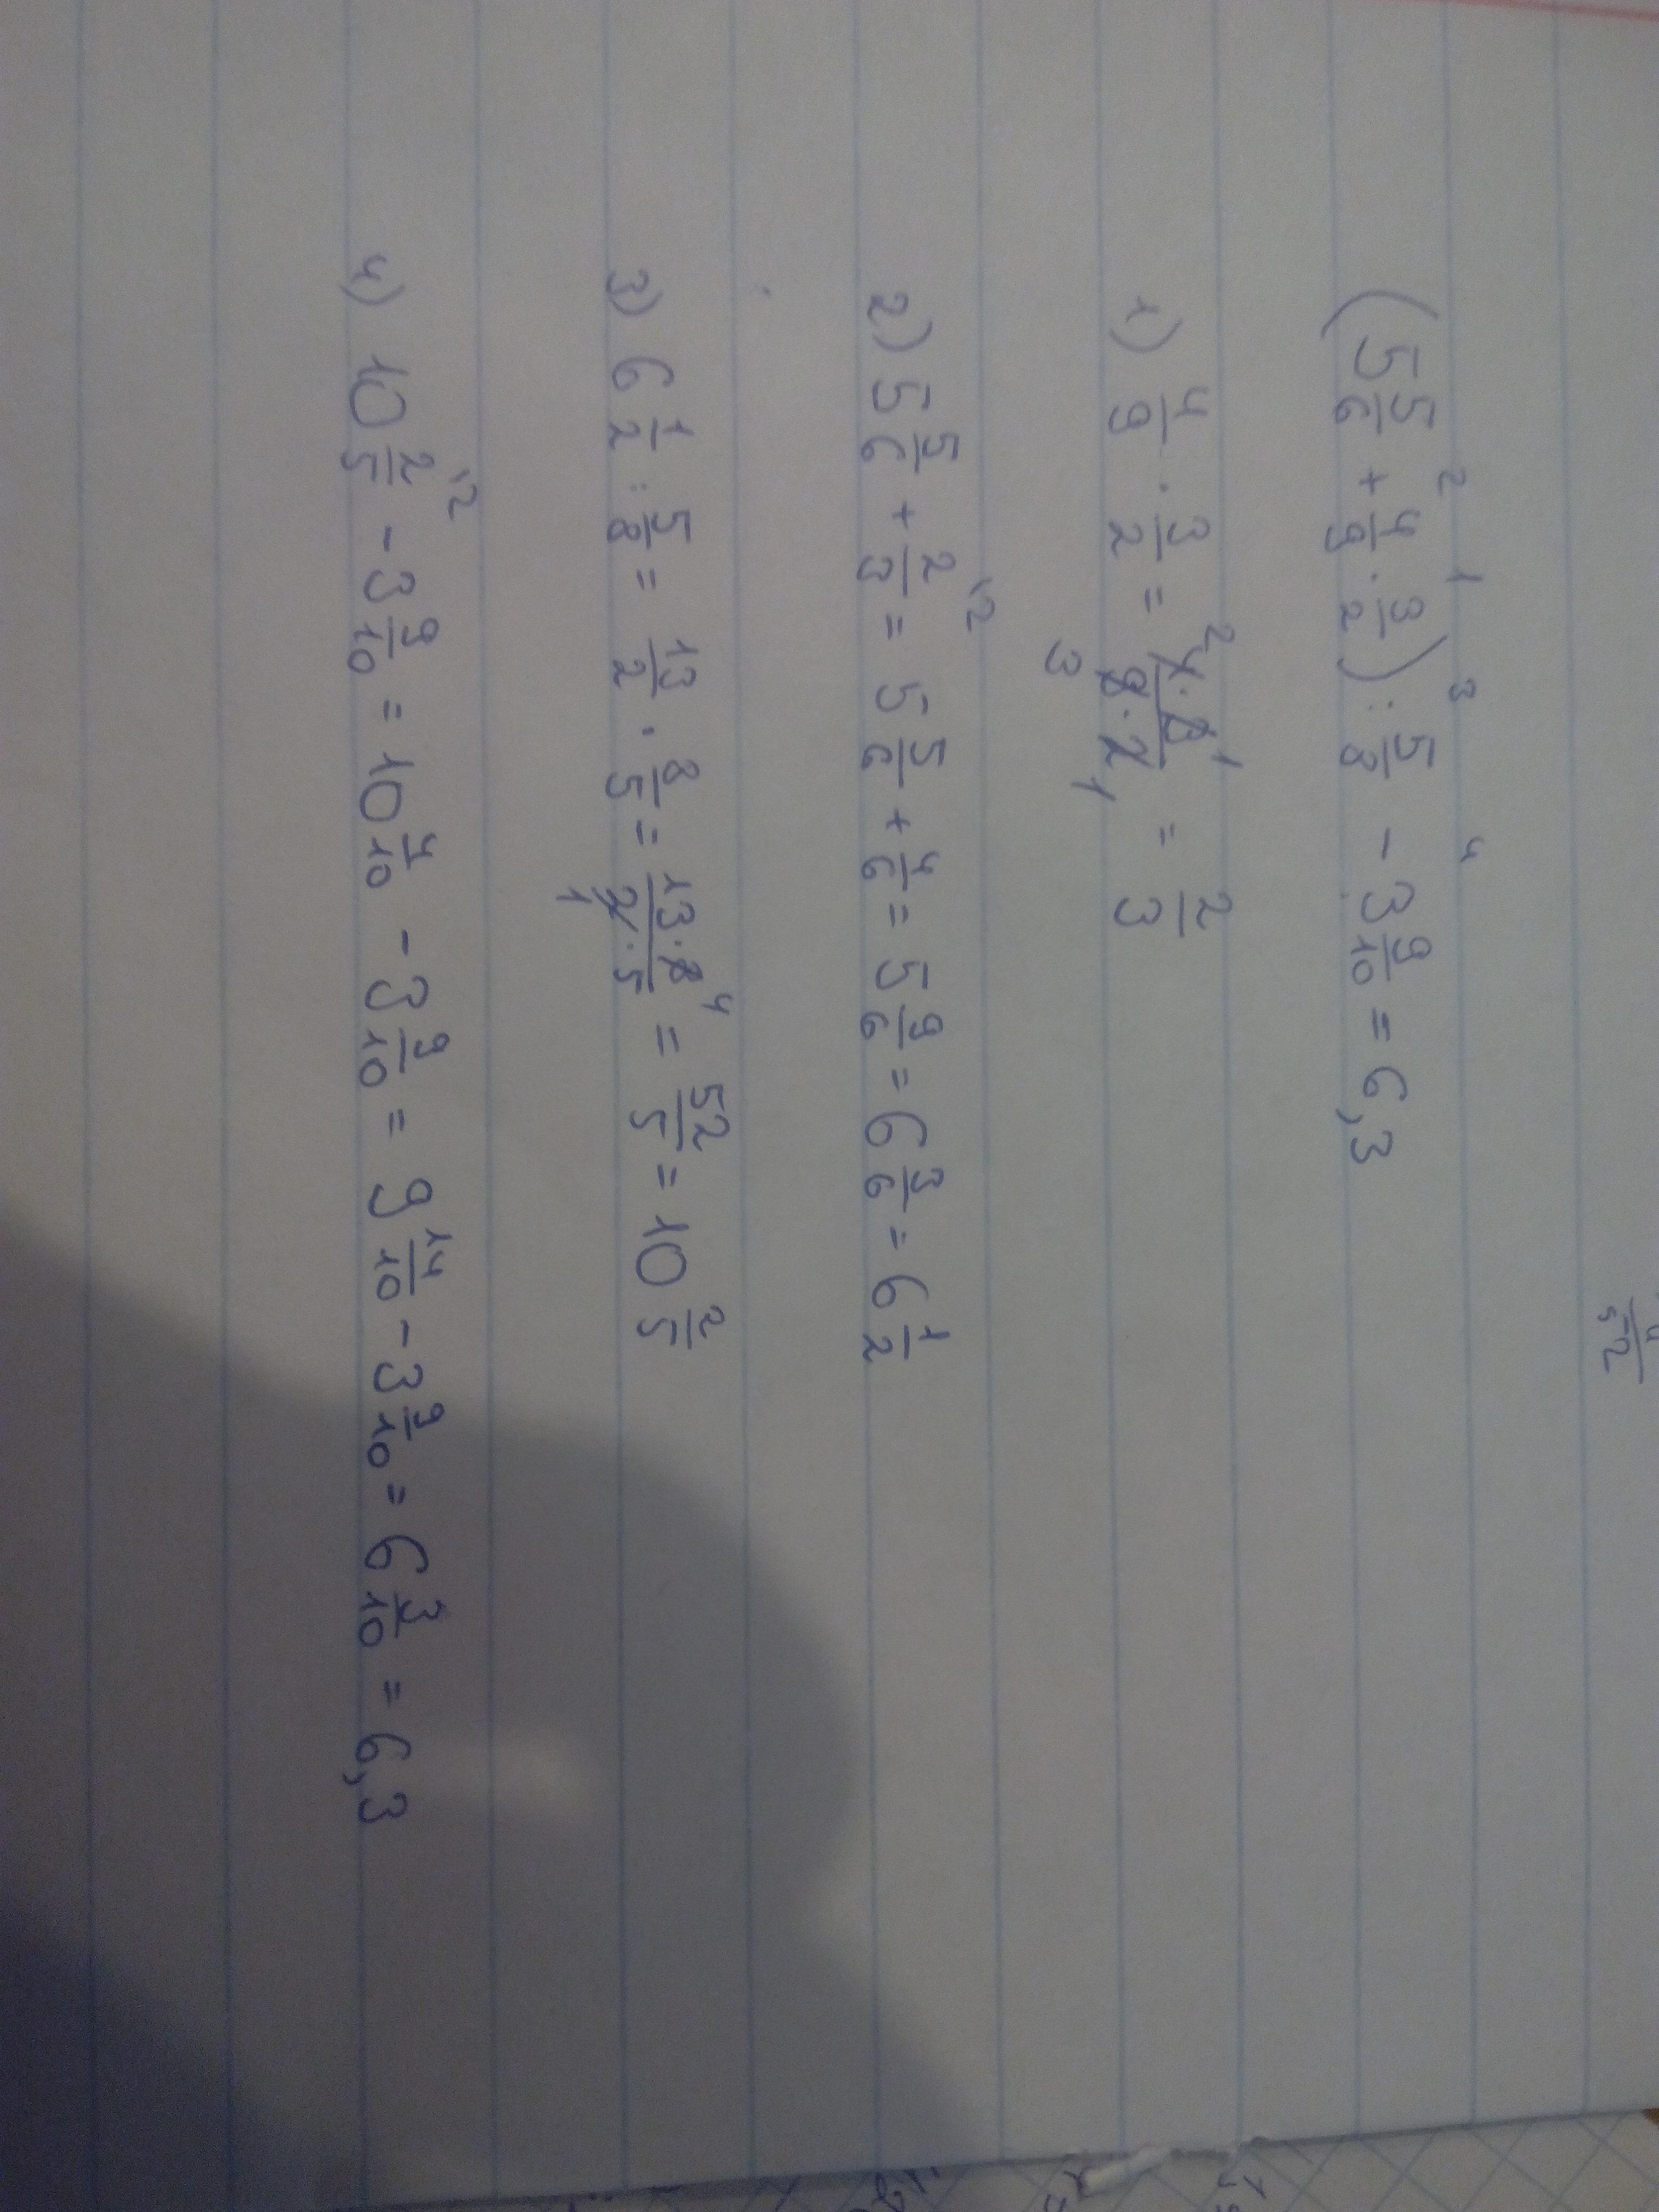 (5 5/6 + 4/9 · 3/2) : 5/8 - 3 9/10 = 6,3
1) 4/9 · 3/2 = 4·3/9·2 = 2/3
2) 5 5/6 + 2/3 = 5 5/6 + 4/6 = 5 9/6 = 6 3/6 = 6 1/2
3) 6 1/2 : 5/8 = 13/2 · 8/5 = 13·8/2·5 = 52/5 = 10 2/5
4) 10 2/5 - 3 9/10 = 10 4/10 - 3 9/10 = 9 14/10 - 3 9/10 = 6 3/10 = 6,3